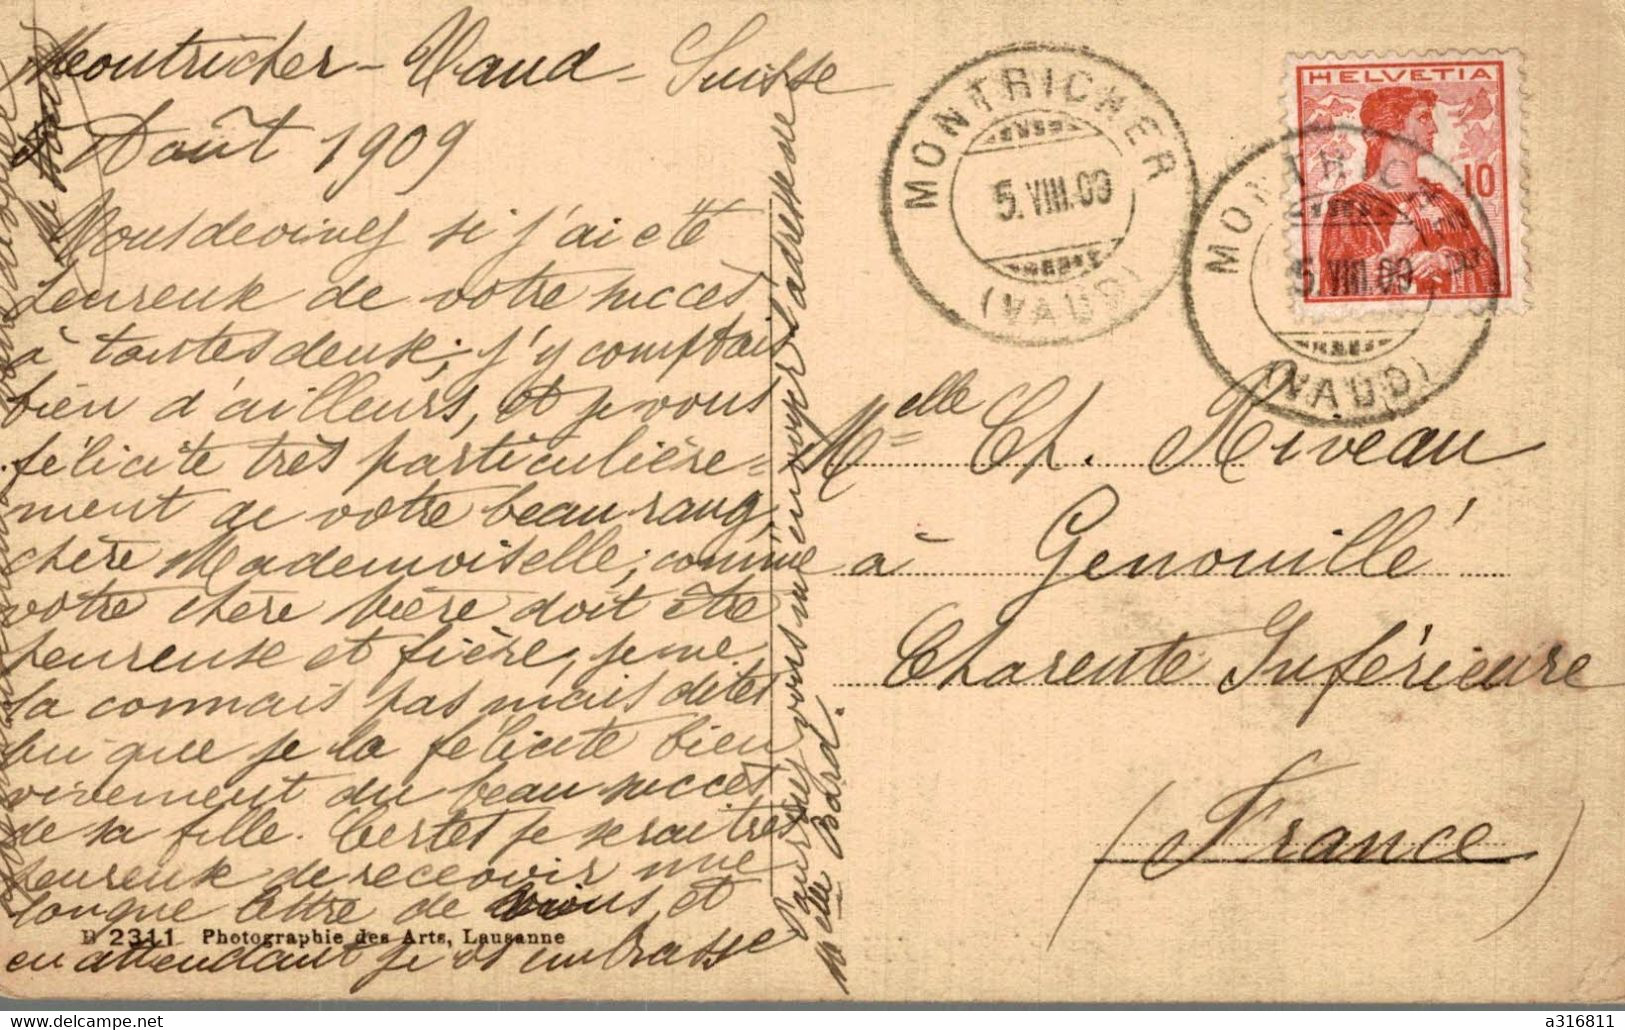 Montricher - Vaud - Suisse
Août 1909
Vous devinez si j'ai été
heureux de votre succès
à toutes deux; j'y comptais
bien d'ailleurs, et je vous
félicite très particulière=
ment de votre beau rang,
chère Mademoiselle; comme
votre chère mère doit être
heureuse et fière, je ne
la connais pas mais dites
lui que je la félicite bien
vivement du beau succès
de sa fille. Certes je serai très
heureux de recevoir une
longue lettre de vous, et
en attendant je vs embrasse
B 2311 Photographie des Arts, Lausanne
Pourriez vous m'envoyer l'adresse de
Melle Bard.
MONTRICHER
5.VIII.09
(VAUD)
HELVETIA
10
MONTRICHER
5.VIII.09
(VAUD)
Melle Ch. Riveau
à Genouillé
Charente Inférieure
(France)
delcampe.net
a316811